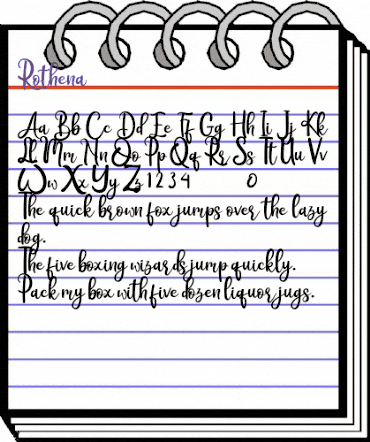 Rothena
Aa Bb Cc Dd Ee Ff Gg Hh Ii Jj Kk
Ll Mm Nn Oo Pp Qq Rr Ss Tt Uu Vv
Ww Xx Yy Zz 1 2 3 4 0
The quick brown fox jumps over the lazy
dog.
The five boxing wizards jump quickly.
Pack my box with five dozen liquor jugs.